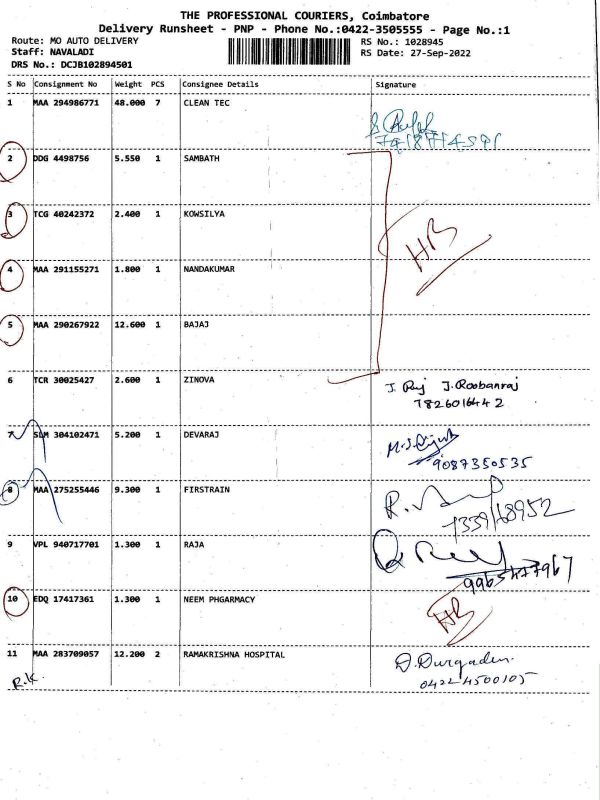 THE PROFESSIONAL COURIERS, Coimbatore
Delivery Runsheet - PNP - Phone No.:0422-3505555 - Page No.:1
Route: MO AUTO DELIVERY RS No.: 1028945
Staff: NAVALADI RS Date: 27-Sep-2022
DRS No.: DCJB102894501
S No Consignment No Weight PCS Consignee Details Signature
1 MAA 294986771 48.000 7 CLEAN TEC
2 DDG 4498756 5.550 1 SAMBATH
3 TCG 40242372 2.400 1 KOWSILYA
HB
4 MAA 291155271 1.800 1 NANDAKUMAR
5 MAA 290267922 12.600 1 BAJAJ
6 TCR 30025427 2.600 1 ZINOVA J. Roobanraj
7826016442
7 SLM 304102471 5.200 1 DEVARAJ
9087350535
8 MAA 275255446 9.300 1 FIRSTRAIN
9 VPL 940717701 1.300 1 RAJA
10 EDQ 17417361 1.300 1 NEEM PHGARMACY HB
11 MAA 283709057 12.200 2 RAMAKRISHNA HOSPITAL
R.K. 0422-4500105